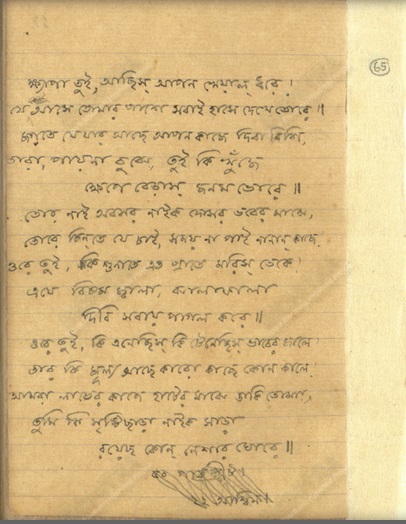 65
ক্ষ্যাপা তুই, আছিস্ আপন খেয়াল ধরে।
যে আসে তোমার পাশে সবাই হাসে দেখে তোরে॥
জগতে যে যার আছে আপন কাজে দিবা নিশি,
তারা, পায়না বুঝে, তুই কি খুঁজে
ক্ষেপে বেড়াস্ জনম ভোরে॥
তোর নাই অবসর নাইক দোসর ভবের মাঝে,
তোরে চিনতে যে চাই, সময় না পাই নানান্ কাজে.
ওরে তুই, কি শুনাতে এত প্রাতে মরিস্ ডেকে?
এযে বিষম জ্বালা, ঝালাফালা
দিবি সবায় পাগল করে॥
ওরে তুই, কি এনেছিস্ কি টেনেছিস্ ভাবের জালে?
তার কি মূল্য আছে কারো কাছে কোন কালে.
আমরা লাভের কাজে হাটের মাঝে ডাকি তোমা,
তুমি কি সৃষ্টিছাড়া নাইক সাড়া
রয়েছ কোন্ নেশার ঘোরে॥
আশ্বিন।